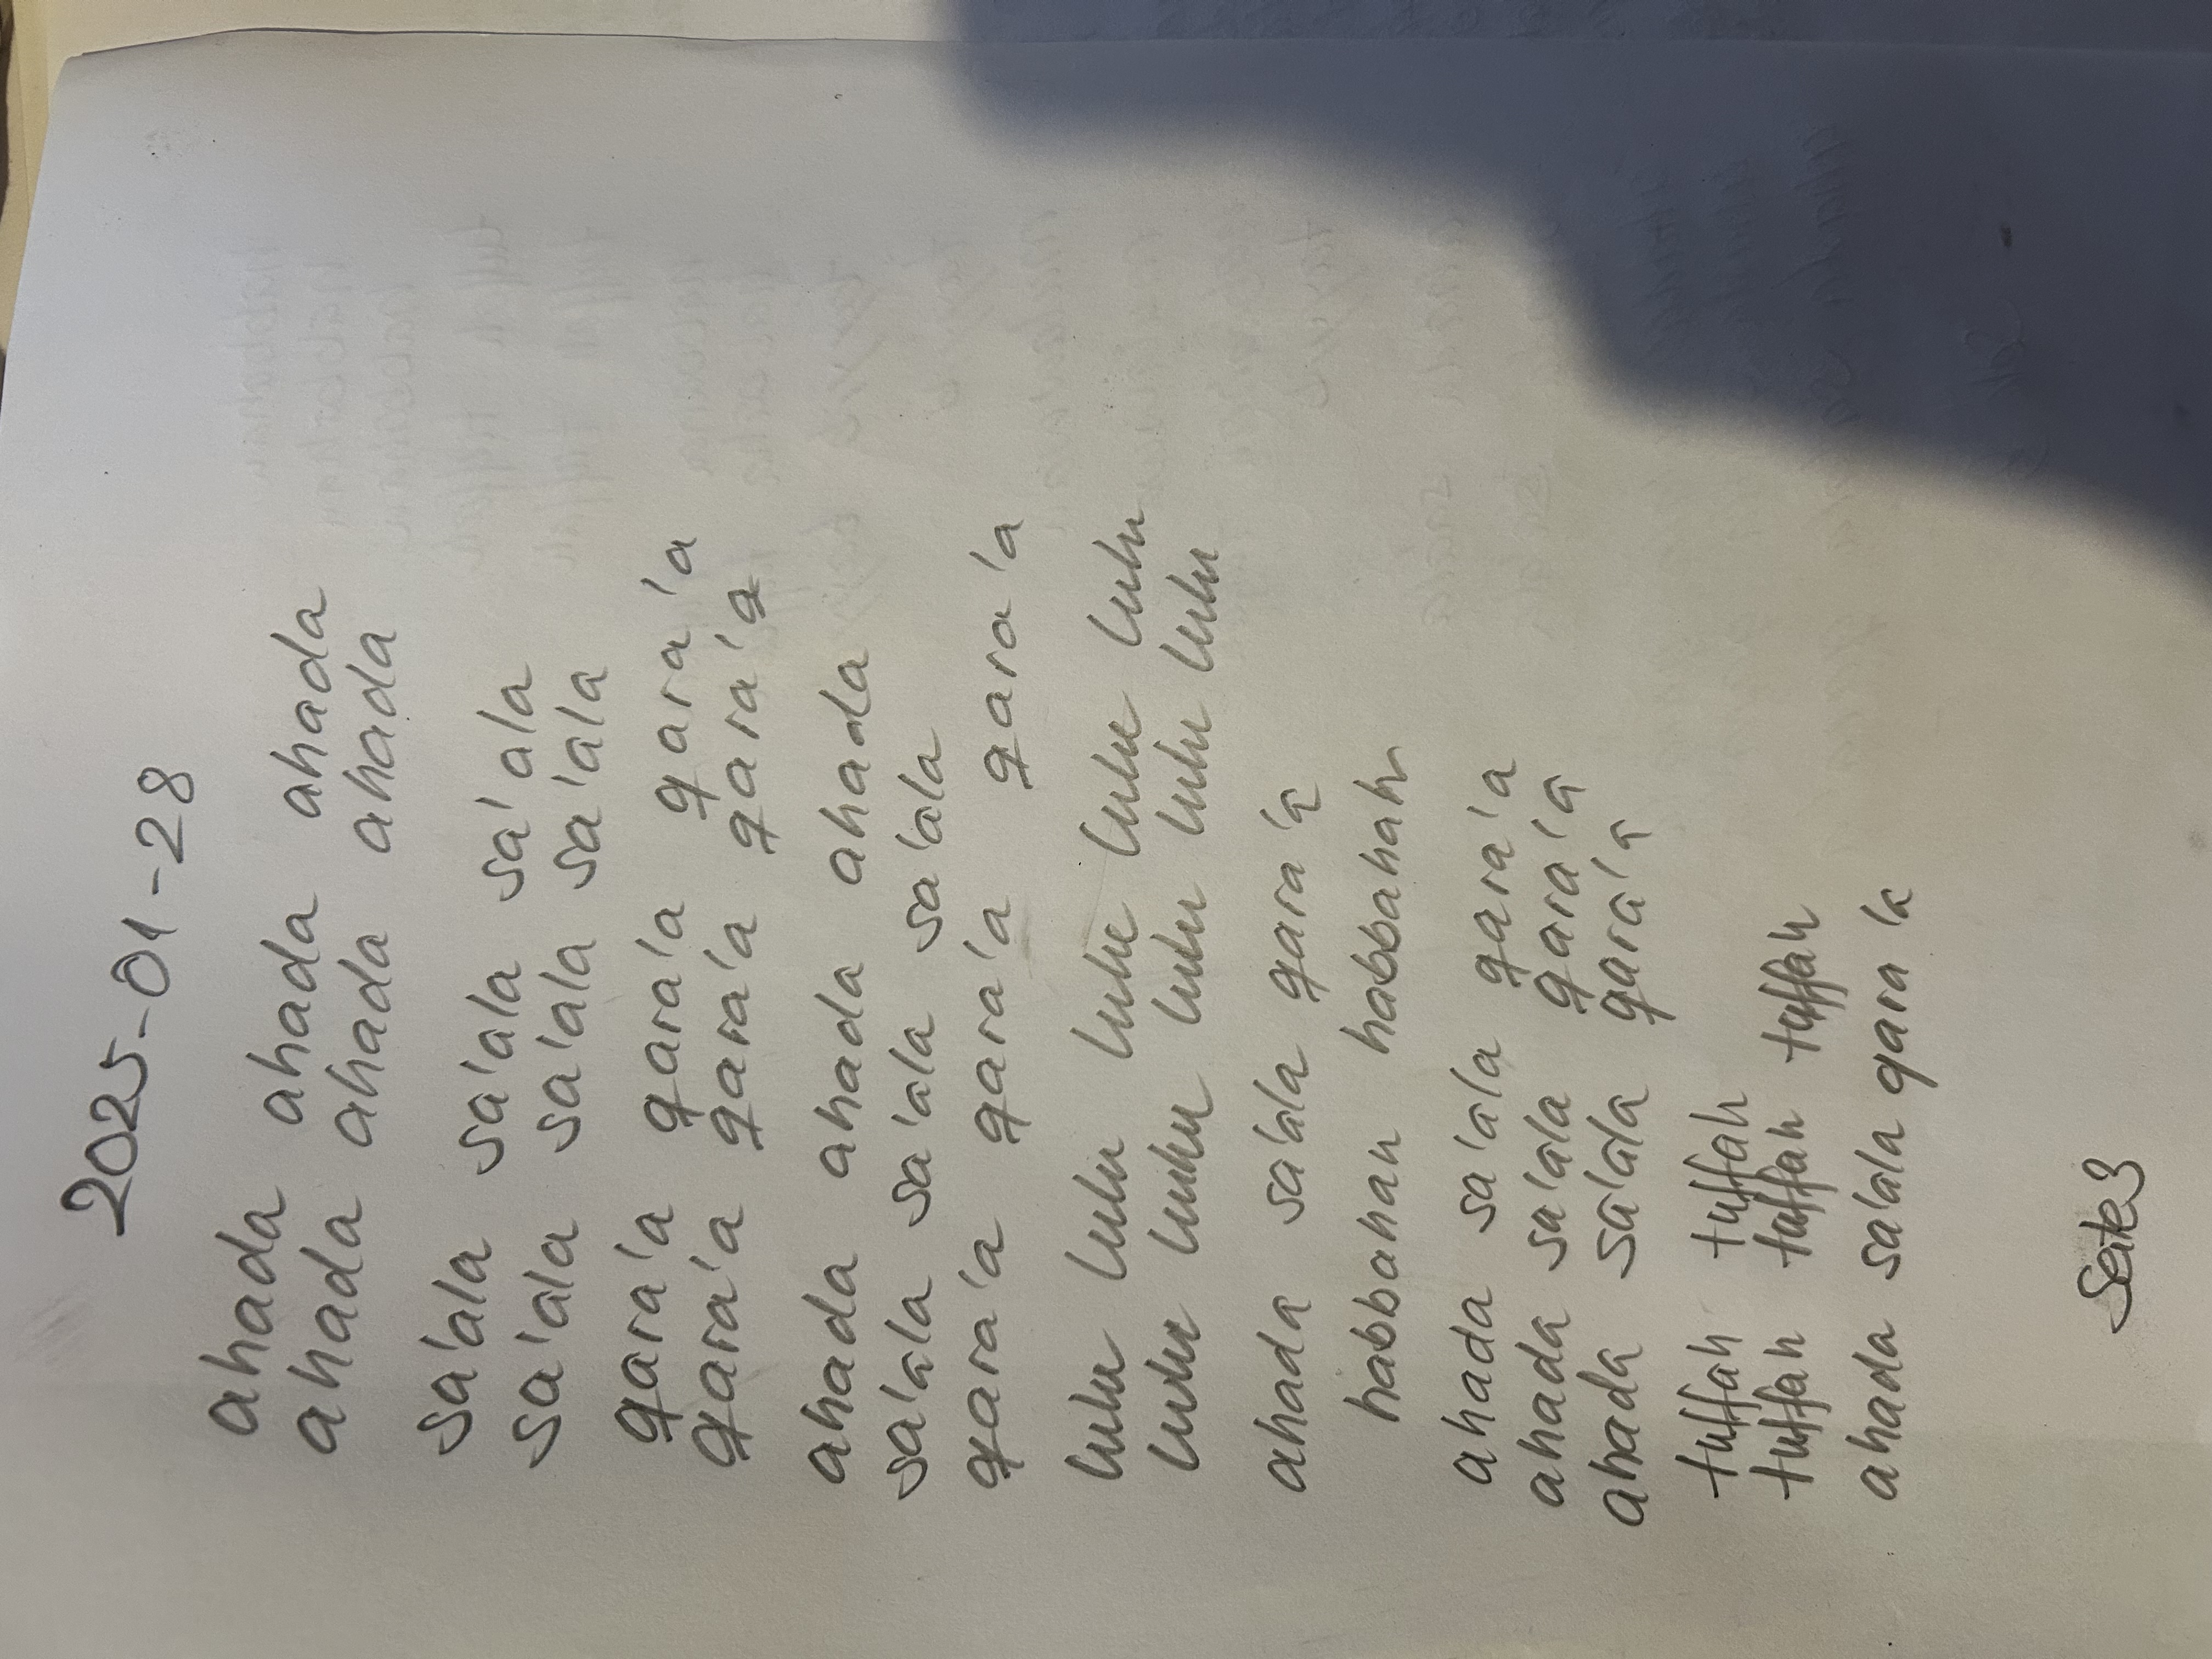 2025-01-28
ahada ahada ahada
ahada ahada ahada
sa'ala sa'ala sa'ala
sa'ala sa'ala sa'ala
qara'a qara'a qara'a
qara'a qara'a qara'a
ahada ahada ahada
sa'ala sa'ala sa'ala
qara'a qara'a qara'a
luhu luhu luhu luhu luhu
luhu luhu luhu luhu luhu
ahada sa'ala qara'a
habbahah habbahah
ahada sa'ala qara'a
ahada sa'ala qara'a
ahada sa'ala qara'a
tuffah tuffah
tuffah tuffah tuffah
ahada sa'ala qara'a
Seite 3